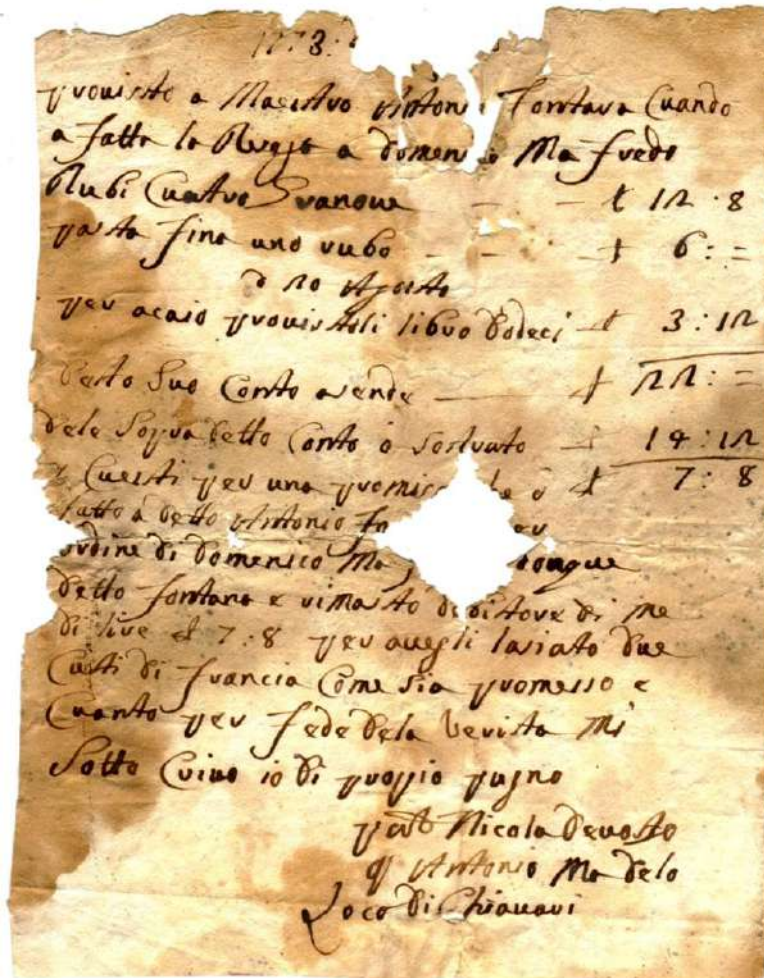 1773:
provisto a Maestro Antoni Fontana Cuando
a fatto la a domenico Ma fredo
Rubi Cuatro £ 12 · 8
pasta fina uno rubo - - £ 6 : =
20 Agosto
per acaio provistoli libre dodeci £ 3 : 12
detto Suo Conto asende £ 22 : =
dela Sopra detto Conto o £ 14 : 12
Cuesti per una £ 7 : 8
fatto a detto Antonio
ordine di domenico Ma
detto fontana e rimasto debitore di me
di lire £ 7 : 8 per avegli lasiato due
di francia Come sia promesso e
Cuanto per fede dela verita Mi
Sotto Crivo io di propio pugno
Nicola devoto
q Antonio Ma delo
Loco di Chiavari